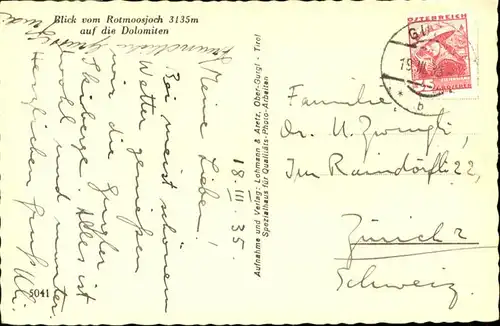 Blick vom Rotmoosjoch 3135m
auf die Dolomiten
18.III.35.
Meine Lieben!
Bei meist schönem
Wetter geniessen
wir die Gurgler
Skiberge. Alles ist
wohl und munter.
Herzlichen Gruss Uli.
5041
Aufnahme und Verlag: Lohmann & Aretz, Ober-Gurgl - Tirol
Spezialhaus für Qualitäts-Photo-Arbeiten
ÖSTERREICH
Familie
Dr. U. Zwingli,
Im Raindörfli 22,
Zürich 2
Schweiz.